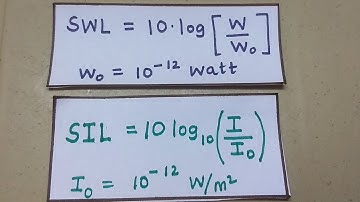 SWL = 10·log [W/W₀]
W₀ = 10⁻¹² Watt
SIL = 10 log₁₀ (I/I₀)
I₀ = 10⁻¹² W/m²